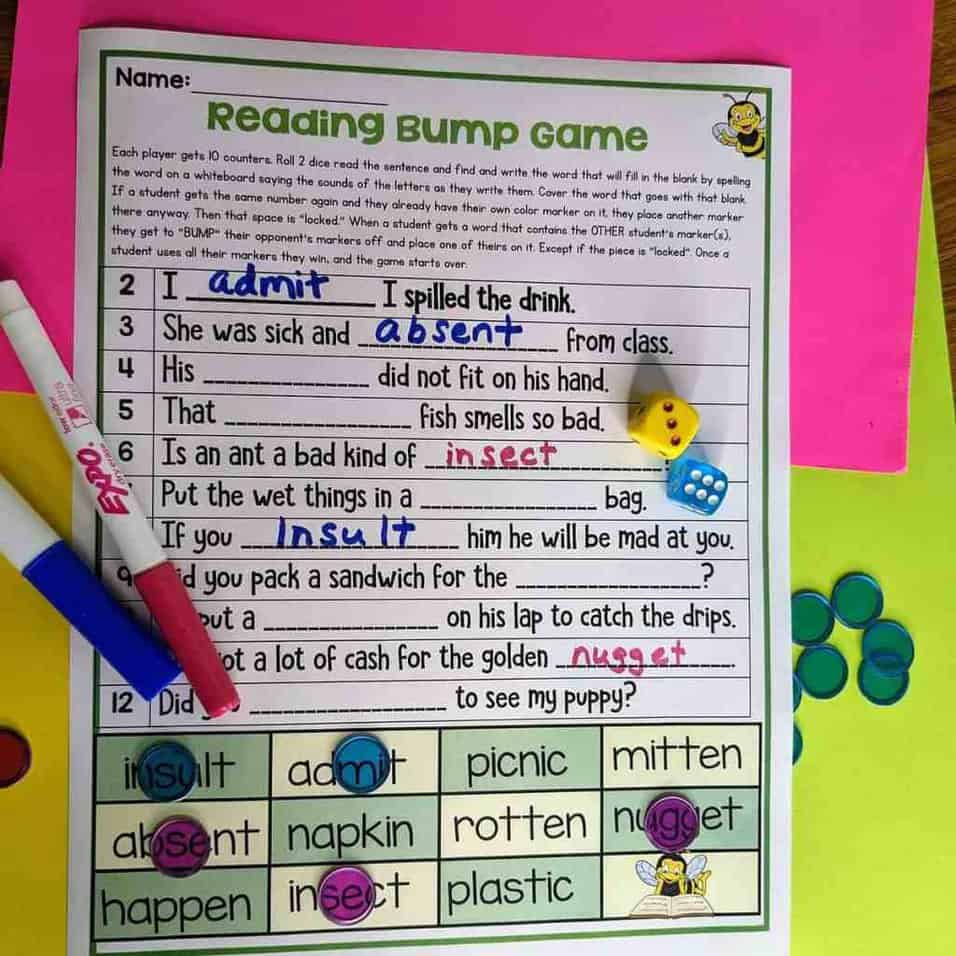 Name:
Reading Bump Game
Each player gets 10 counters. Roll 2 dice read the sentence and find and write the word that will fill in the blank by spelling
the word on a whiteboard saying the sounds of the letters as they write them. Cover the word that goes with that blank.
If a student gets the same number again and they already have their own color marker on it, they place another marker
there anyway. Then that space is "locked." When a student gets a word that contains the OTHER student's marker(s),
they get to "BUMP" their opponent's markers off and place one of theirs on it. Except if the piece is "locked". Once a
student uses all their markers they win, and the game starts over.
2 I admit I spilled the drink.
3 She was sick and absent from class.
4 His ______ did not fit on his hand.
5 That ______ fish smells so bad.
6 Is an ant a bad kind of insect
Put the wet things in a ______ bag.
If you Insult him he will be mad at you.
9 id you pack a sandwich for the ______?
put a ______ on his lap to catch the drips.
ot a lot of cash for the golden nugget.
12 Did ______ to see my puppy?
EXPO
insult admit picnic mitten
absent napkin rotten nugget
happen insect plastic